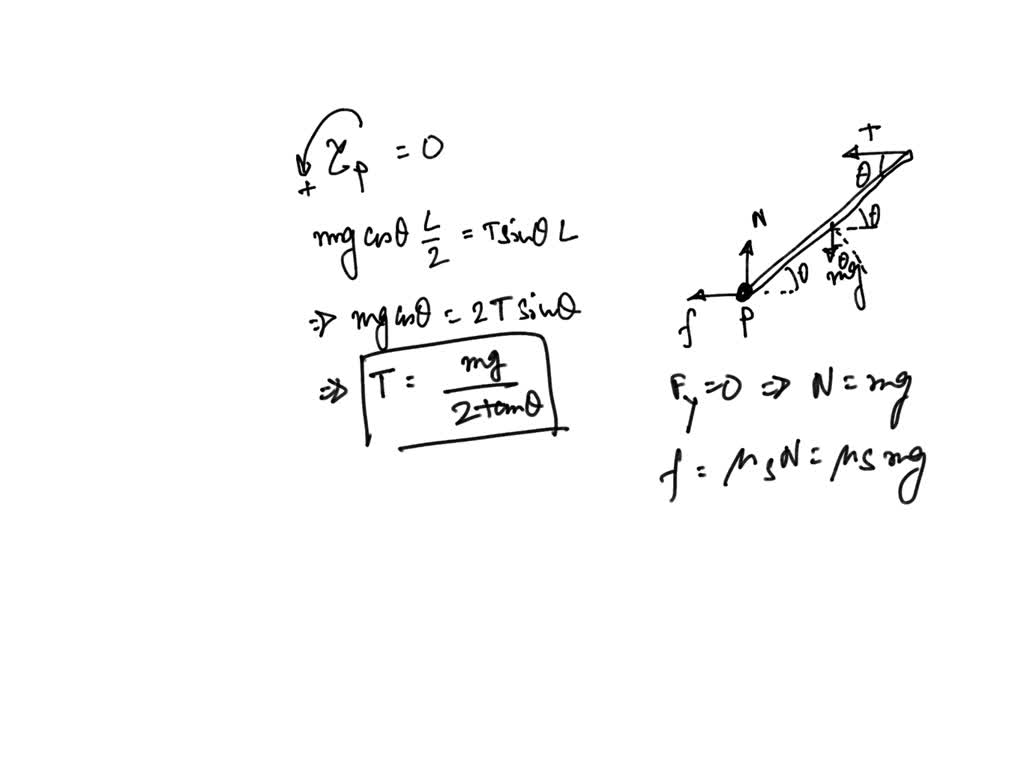 + τ_P = 0
mg cosθ L/2 = T sinθ L
⇒ mg cosθ = 2T sinθ
⇒ T = mg / 2 tanθ
T
θ
N
θ
θ
θ
mg
f
P
F_y = 0 ⇒ N = mg
f = μ_s N = μ_s mg